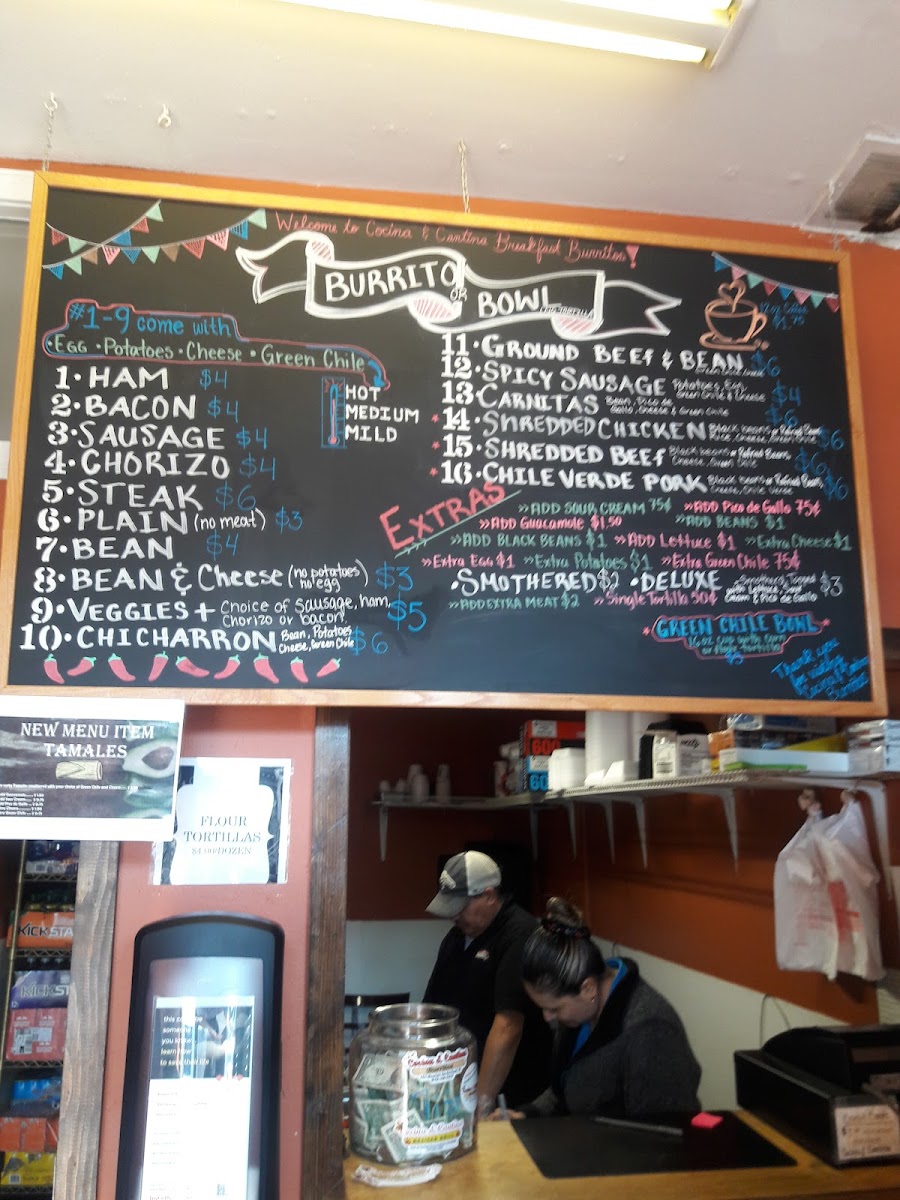 Welcome to Cocina & Cantina Breakfast Burritos!
BURRITO OR BOWL
12 oz Coffee
$1.75
#1-9 come with
•EGG •Potatoes •Cheese •Green Chile
1• HAM $4
2• BACON $4
3• SAUSAGE $4
4• CHORIZO $4
5• STEAK $6
6• PLAIN (no meat) $3
7• BEAN $4
8• BEAN & Cheese (no potatoes no egg) $3
9• VEGGIES + choice of sausage, ham, chorizo or bacon $5
10• CHICHARRON Bean, Potatoes Cheese, Green Chile $6
HOT
MEDIUM
MILD
11• GROUND BEEf & BEAN $6
12• SPICY SAUSAGE Potatoes, Egg, Green Chile & Cheese $4
13• CARNITAS Bean, Pico de Gallo, Cheese & Green Chile $6
14• SHREDDED CHICKEN Black beans or Refried Beans, Rice, Cheese, Green Chile $6
15• SHREDDED BEEf Black beans or Refried Beans, Cheese, Green Chile $6
16• CHILE VERDE PORK Black beans or Refried Beans, Cheese, Chile Verde $6
EXTRAS
»ADD SOUR CREAM 75¢ »ADD Pico de Gallo 75¢
»ADD Guacamole $1.50 »ADD BEANS $1
»ADD BLACK BEANS $1 »ADD Lettuce $1 »Extra Cheese $1
»Extra Egg $1 »Extra Potatoes $1 »Extra Green Chile 75¢
•SMOTHERED $2 •DELUXE Smothered, Topped with Lettuce, Sour Cream & Pico de Gallo $3
»ADD EXTRA MEAT $2 »Single Tortilla 50¢
GREEN CHILE BOWL
16 oz cup with corn
or flour tortilla
$5
Thank you
NEW MENU ITEM
TAMALES
FLOUR
TORTILLAS
$4.00/DOZEN
KICKSTA
KICKST
600
60
this
someone
you know
learn how
to save their life